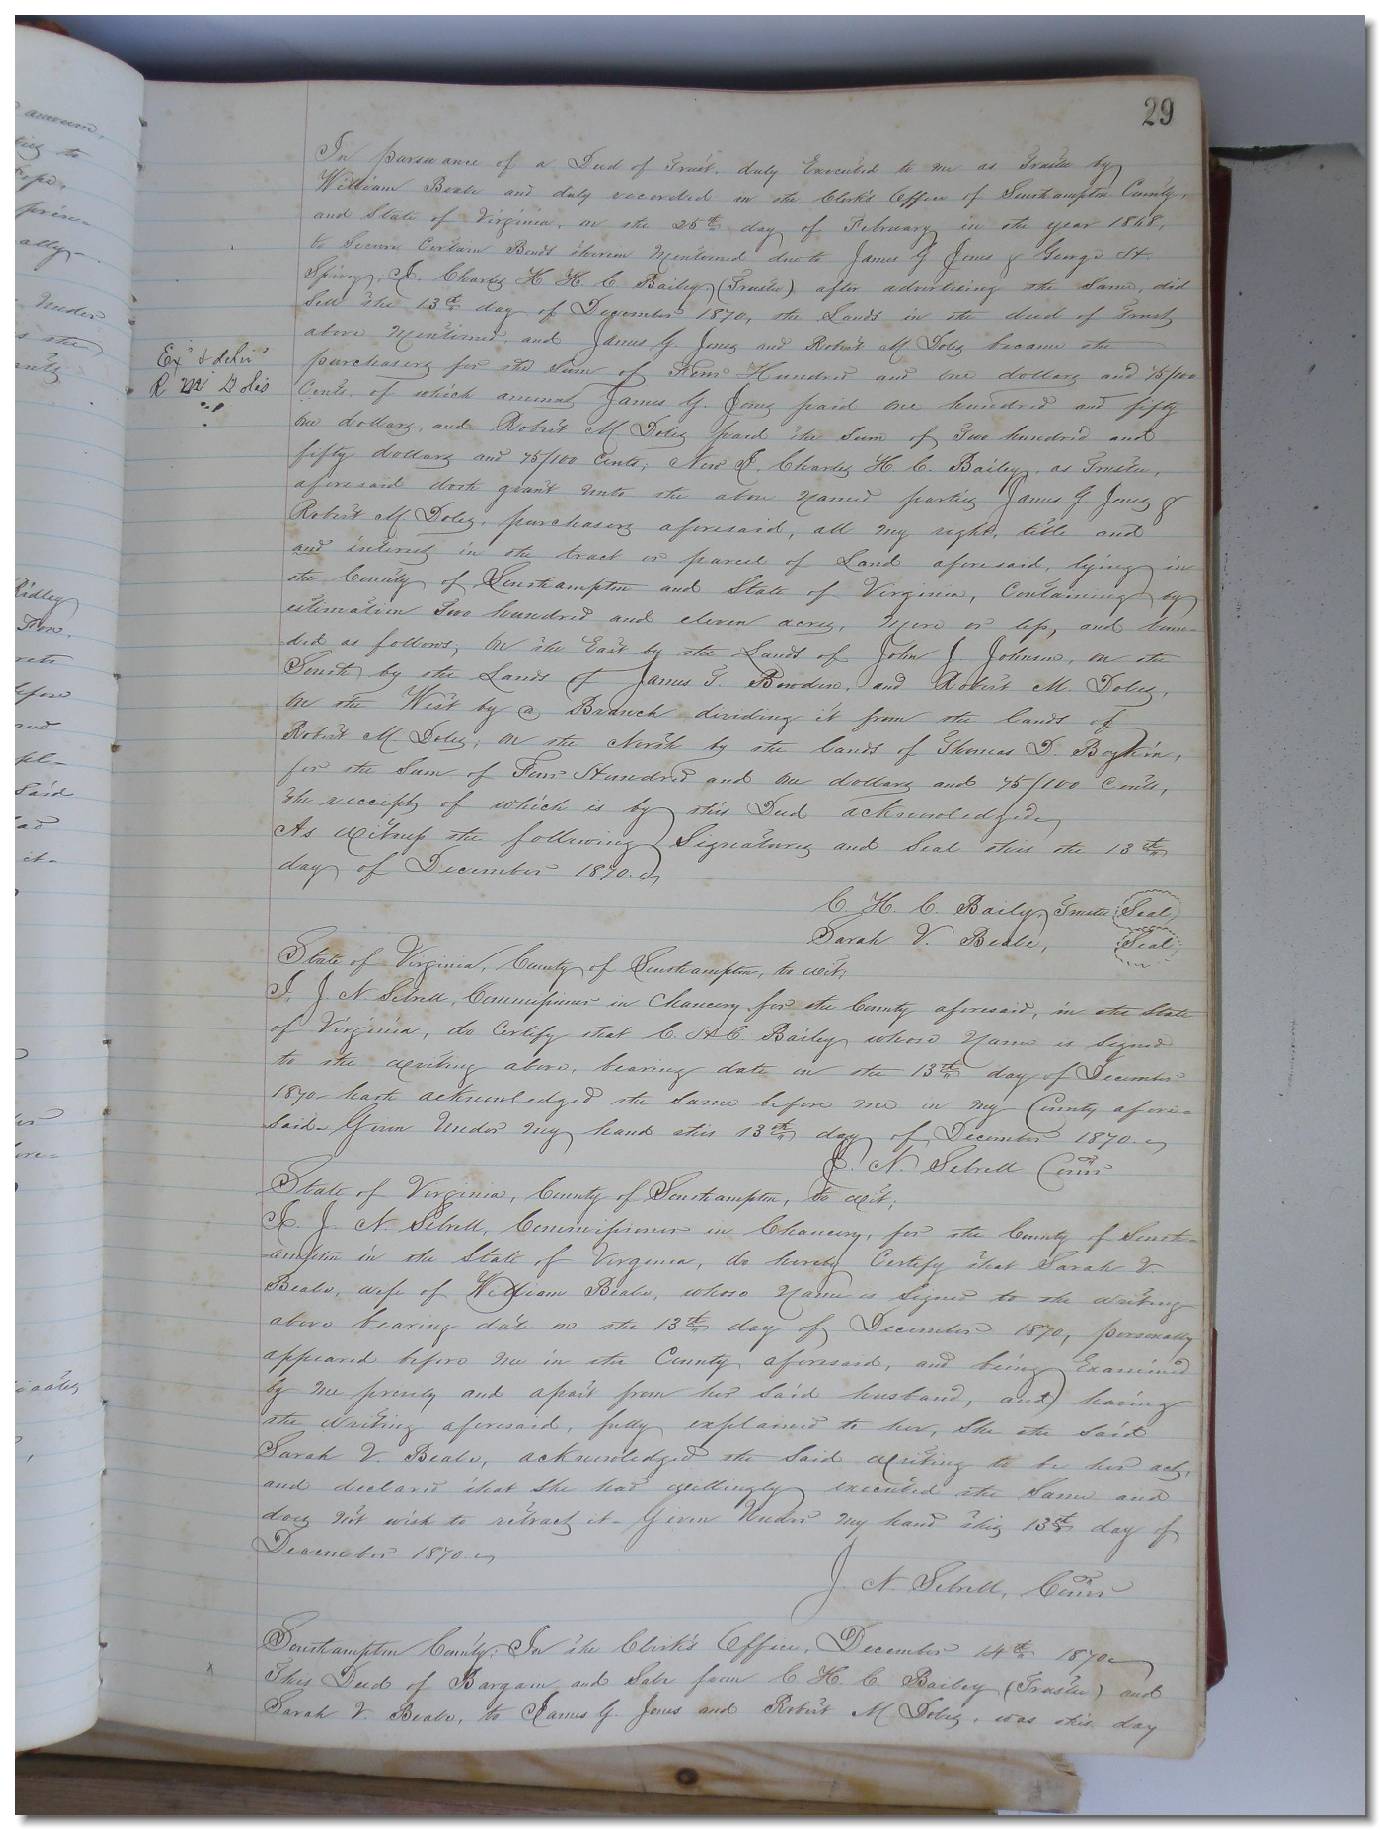 29
In pursuance of a Deed of Trust, duly Executed to me as Trustee by
William Beale and duly recorded in the Clerk's Office of Southampton County,
and State of Virginia, on the 25th day of February in the year 1868,
to Secure Certain Bonds therein Mentioned due to James G Jones & George H.
Spivey, I. Charles H. H. C Bailey, (Trustee) after advertising the Same, did
Sell the 13th day of December 1870, the Lands in the deed of Trust
above Mentioned, and James G. Jones and Robert M Doles became the
Exd & delivd
R M Doles
purchasers for the Sum of Four Hundred and one dollars and 75/100
Cents, of which amount James G. Jones paid one hundred and fifty
one dollars, and Robert M Doles paid the Sum of Two hundred and
fifty dollars and 75/100 Cents; Now I. Charles H C. Bailey, as Trustee,
aforesaid doth grant unto the above named parties James G Jones &
Robert M. Doles, purchasers aforesaid, all my right, title and
and interest in the tract or parcel of Land aforesaid, lying in
the County of Southampton and State of Virginia, Containing by
estimation Two hundred and eleven acres, more or less, and boun-
ded as follows; On the East by the Lands of John J Johnson, on the
South by the Lands of James T. Bowden, and Robert M. Doles,
on the West by a Branch dividing it from the lands of
Robert M Doles; On the North by the lands of Thomas D. Boykin,
for the Sum of Four Hundred and One dollars and 75/100 Cents,
the receipt of which is by this Deed acknowledged
As witness the following Signatures and Seal this the 13th
day of December 1870.
C. H. C. Baily, Trustee Seal
Sarah V. Beale, Seal
State of Virginia, County of Southampton, to wit;
I, J. N. Sebrell, Commissioner in Chancery for the County aforesaid, in the State
of Virginia, do Certify that C. H C. Bailey whose Name is Signed
to the writing above, bearing date on the 13th day of December
1870 hath acknowledged the Same before me in my County afore-
said- Given Under my hand this 13th day of December 1870.
J. N. Sebrell Comr
State of Virginia, County of Southampton, to wit;
I. J. N. Sebrell, Commissioner in Chancery, for the County of South-
ampton in the State of Virginia, do hereby Certify that Sarah V.
Beale, wife of William Beale, whose Name is Signed to the writing
above bearing date on the 13th day of December 1870, personally
appeared before me in the County aforesaid, and being Examined
by me privily and apart from her said husband, and having
the writing aforesaid, fully explained to her, She the said
Sarah V. Beale, acknowledged the Said writing to be her act,
and declared that She had willingly executed the Same and
does not wish to retract it- Given Under my hand this 13th day of
December 1870.
J. N. Sebrell, Comr
Southampton County; In the Clerk's Office, December 14th 1870
This Deed of Bargain and Sale from C H. C Bailey (Trustee) and
Sarah V. Beale, to James G. Jones and Robert M Doles, was this day